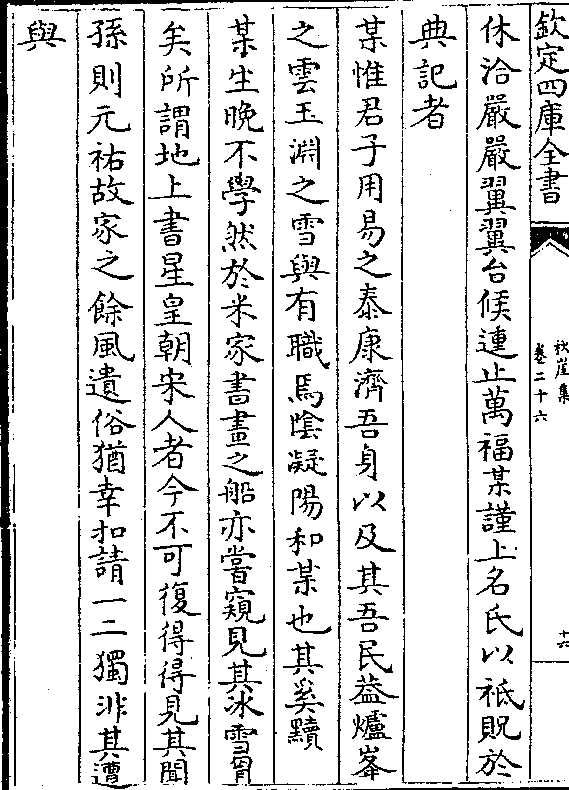 欽定四庫全書
秋崖集
卷二十六
十六
休洽嚴嚴翼翼台候連止萬福某謹上名氏以祗貺於
典記者
某惟君子用易之泰康濟吾身以及其吾民葢爐峯
之雲玉淵之雪與有職焉陰凝陽和某也其奚黷
某生晚不學然於米家書畫之船亦嘗窺見其冰雪胷
矣所謂地上書星皇朝宋人者今不可復得得見其聞
孫則元祐故家之餘風遺俗猶幸扣請一二獨非其遭
與